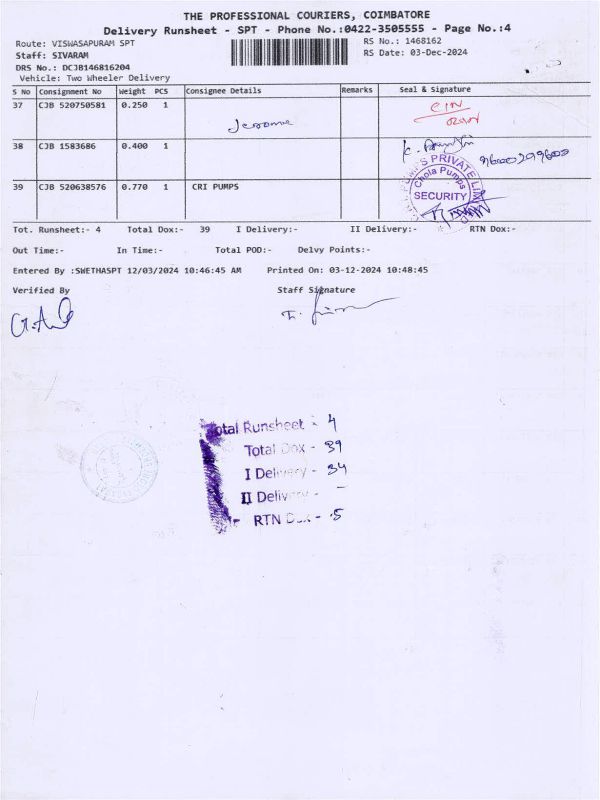 THE PROFESSIONAL COURIERS, COIMBATORE
Delivery Runsheet - SPT - Phone No.:0422-3505555 - Page No.:4
Route: VISWASAPURAM SPT
RS No.: 1468162
Staff: SIVARAM
RS Date: 03-Dec-2024
DRS No.: DCJB146816204
Vehicle: Two Wheeler Delivery
S No Consignment No Weight PCS Consignee Details Remarks Seal & Signature
37 CJB 520750581 0.250 1
Jerome
38 CJB 1583686 0.400 1
39 CJB 520638576 0.770 1 CRI PUMPS
PUMPS PRIVATE LIM
Chola Pumps
SECURITY
Tot. Runsheet:- 4 Total Dox:- 39 I Delivery:- II Delivery:- RTN Dox:-
Out Time:- In Time:- Total POD:- Delvy Points:-
Entered By :SWETHASPT 12/03/2024 10:46:45 AM Printed On: 03-12-2024 10:48:45
Verified By Staff Signature
Total Runsheet - 4
Total Dox - 39
I Delivery - 34
II Delivery - -
RTN Dox - 5